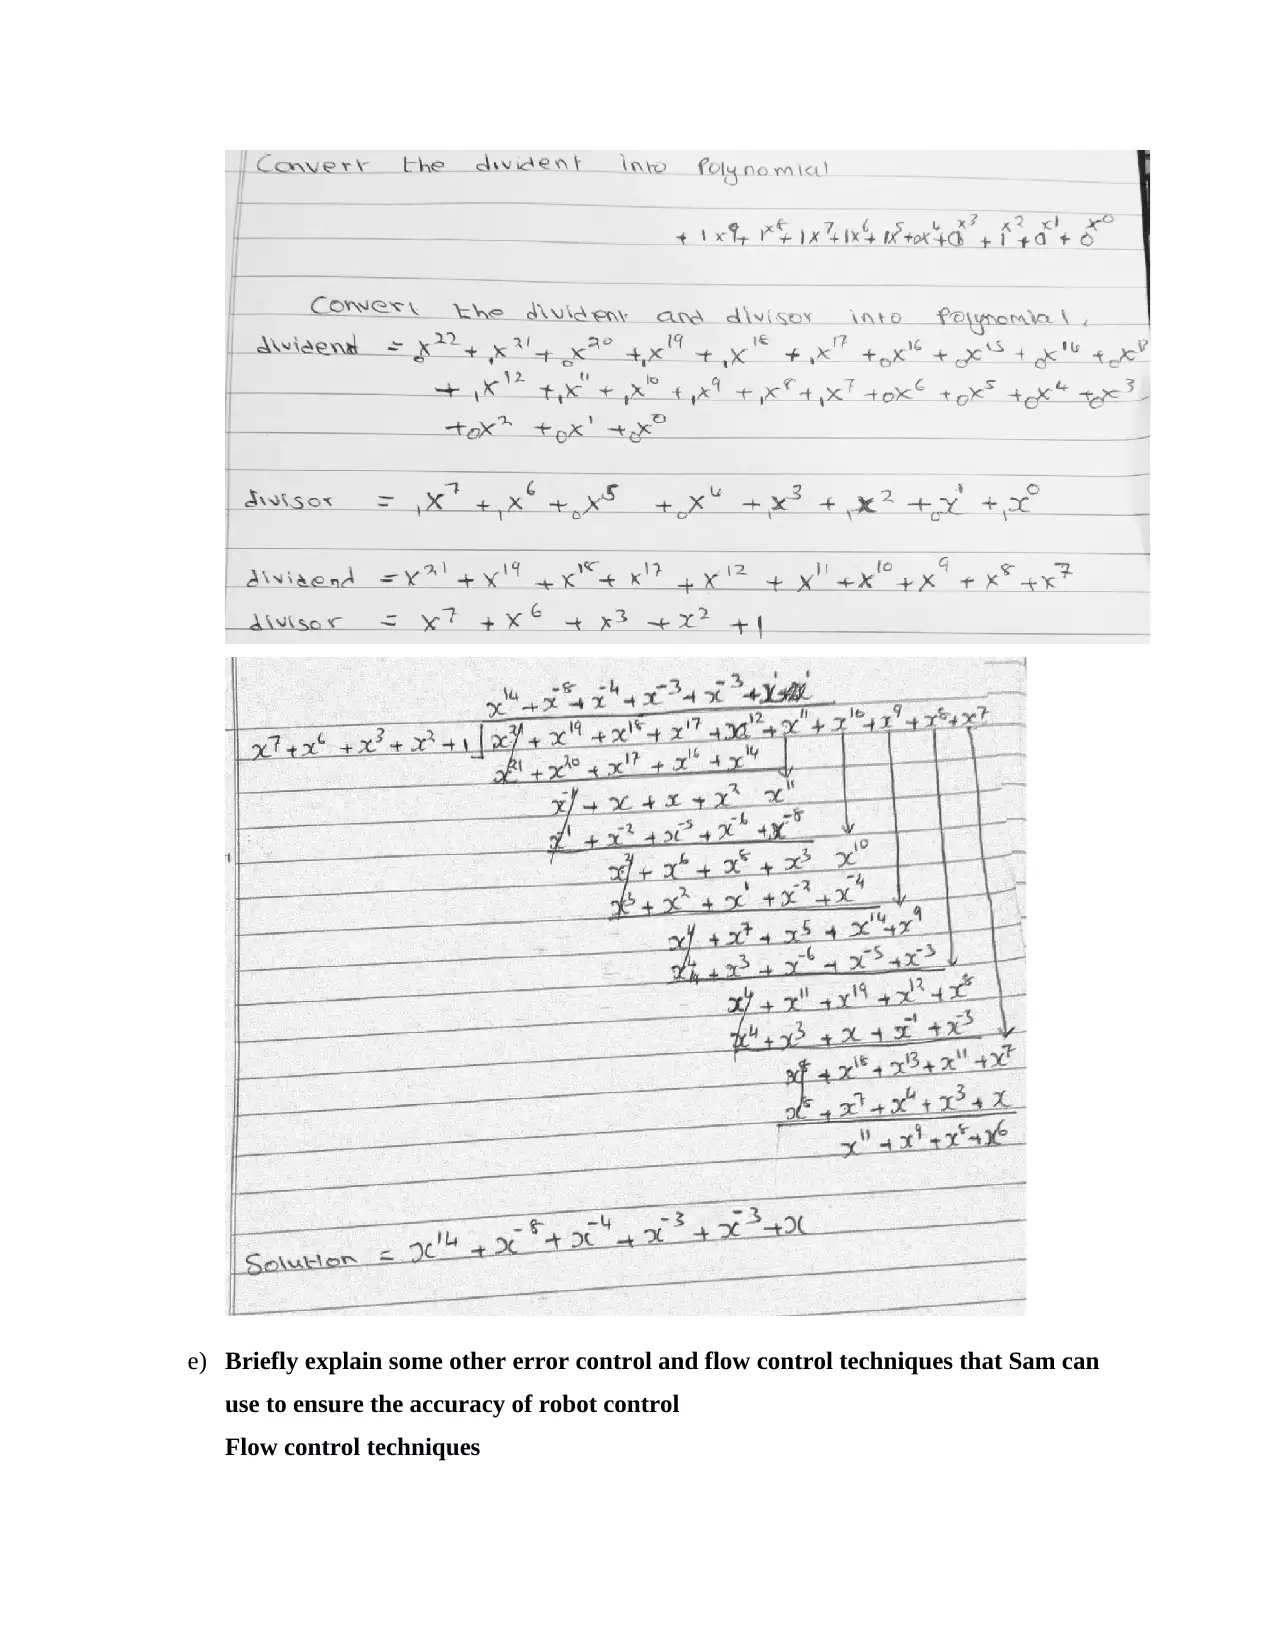 Convert the divident into Polynomial
+ 1x⁹ + 1x⁸ + 1x⁷ + 1x⁶ + 1x⁵ + 0x⁴ + 0x³ + 1x² + 0x¹ + 0x⁰
Convert the divident and divisor into Polynomial.
dividend = 0x²² + 1x²¹ + 0x²⁰ + 1x¹⁹ + 1x¹⁸ + 1x¹⁷ + 0x¹⁶ + 0x¹⁵ + 0x¹⁴ + 0x¹³
+ 1x¹² + 1x¹¹ + 1x¹⁰ + 1x⁹ + 1x⁸ + 1x⁷ + 0x⁶ + 0x⁵ + 0x⁴ + 0x³
+ 0x² + 0x¹ + 0x⁰
divisor = 1x⁷ + 1x⁶ + 0x⁵ + 0x⁴ + 1x³ + 1x² + 0x¹ + 1x⁰
dividend = x²¹ + x¹⁹ + x¹⁸ + x¹⁷ + x¹² + x¹¹ + x¹⁰ + x⁹ + x⁸ + x⁷
divisor = x⁷ + x⁶ + x³ + x² + 1
x¹⁴ + x⁻⁸ + x⁻⁴ + x⁻³ + x⁻³ +
x⁷ + x⁶ + x³ + x² + 1 x²¹ + x¹⁹ + x¹⁸ + x¹⁷ + x¹² + x¹¹ + x¹⁰ + x⁹ + x⁸ + x⁷
x²¹ + x²⁰ + x¹⁷ + x¹⁶ + x¹⁴
+ x + x + x² x¹¹
x¹ + x⁻² + x⁻⁵ + x⁻⁶ + x⁻⁸
+ x⁶ + x⁸ + x³ x¹⁰
x³ + x² + x¹ + x⁻² + x⁻⁴
x⁴ + x⁷ + x⁵ + x¹⁴ + x⁹
x⁴ + x³ + x⁻⁶ + x⁻⁵ + x⁻³
x⁴ + x¹¹ + x¹⁹ + x¹² + x⁸
x⁴ + x³ + x + x⁻¹ + x⁻³
x⁸ + x¹⁸ + x¹³ + x¹¹ + x⁷
x⁸ + x⁷ + x⁴ + x³ + x
x¹¹ + x⁹ + x⁸ + x⁶
Solution = x¹⁴ + x⁻⁸ + x⁻⁴ + x⁻³ + x⁻³ + x
e) Briefly explain some other error control and flow control techniques that Sam can
use to ensure the accuracy of robot control
Flow control techniques